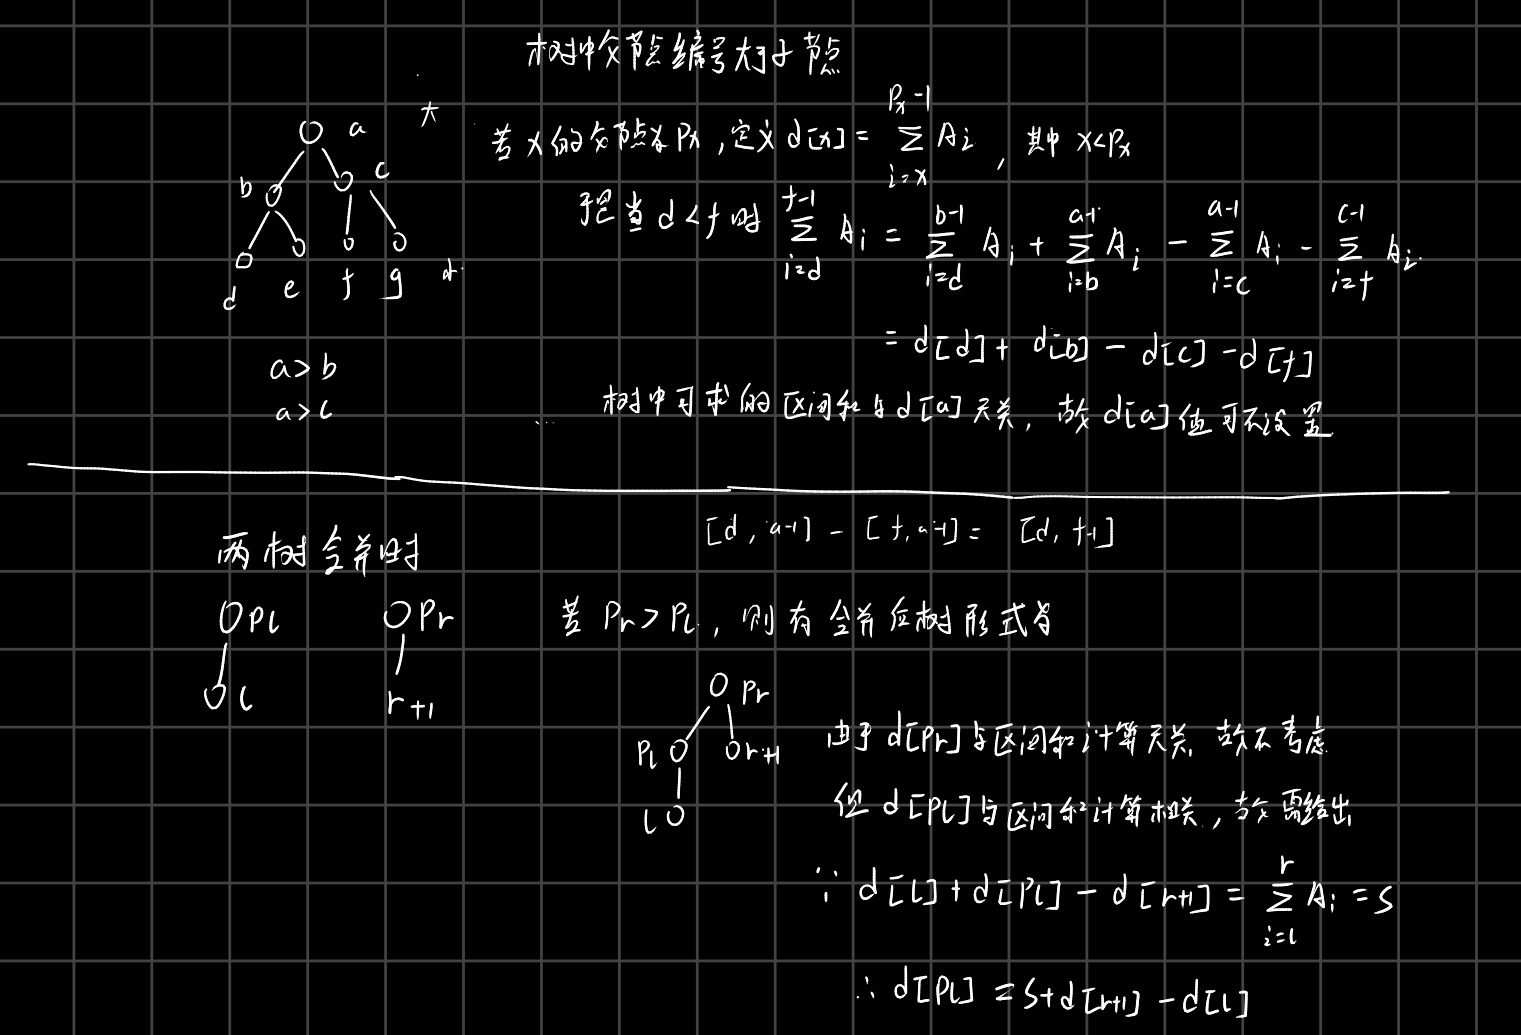 树中父节点编号大于子节点
大
若 x 的父节点为 Px , 定义 d[x] = \sum_{i=x}^{Px-1} Ai , 其中 x<Px
a
b
c
d e f g
则当 d < f 时 \sum_{i=d}^{f-1} Ai = \sum_{i=d}^{b-1} Ai + \sum_{i=b}^{a-1} Ai - \sum_{i=c}^{a-1} Ai - \sum_{i=f}^{c-1} Ai
= d[d] + d[b] - d[c] - d[f]
a > b
a > c
树中可求的区间和与 d[a] 无关, 故 d[a] 值可不设置
[d, a-1] - [f, a-1] = [d, f-1]
两树合并时
Pl
l
Pr
r+1
若 Pr > Pl , 则有合并后树形式为
Pr
Pl
r+1
l
由于 d[Pr] 与区间和计算无关, 故不考虑
但 d[Pl] 与区间和计算相关, 故需给出
∵ d[l] + d[Pl] - d[r+1] = \sum_{i=l}^{r} Ai = S
∴ d[Pl] = S + d[r+1] - d[l]